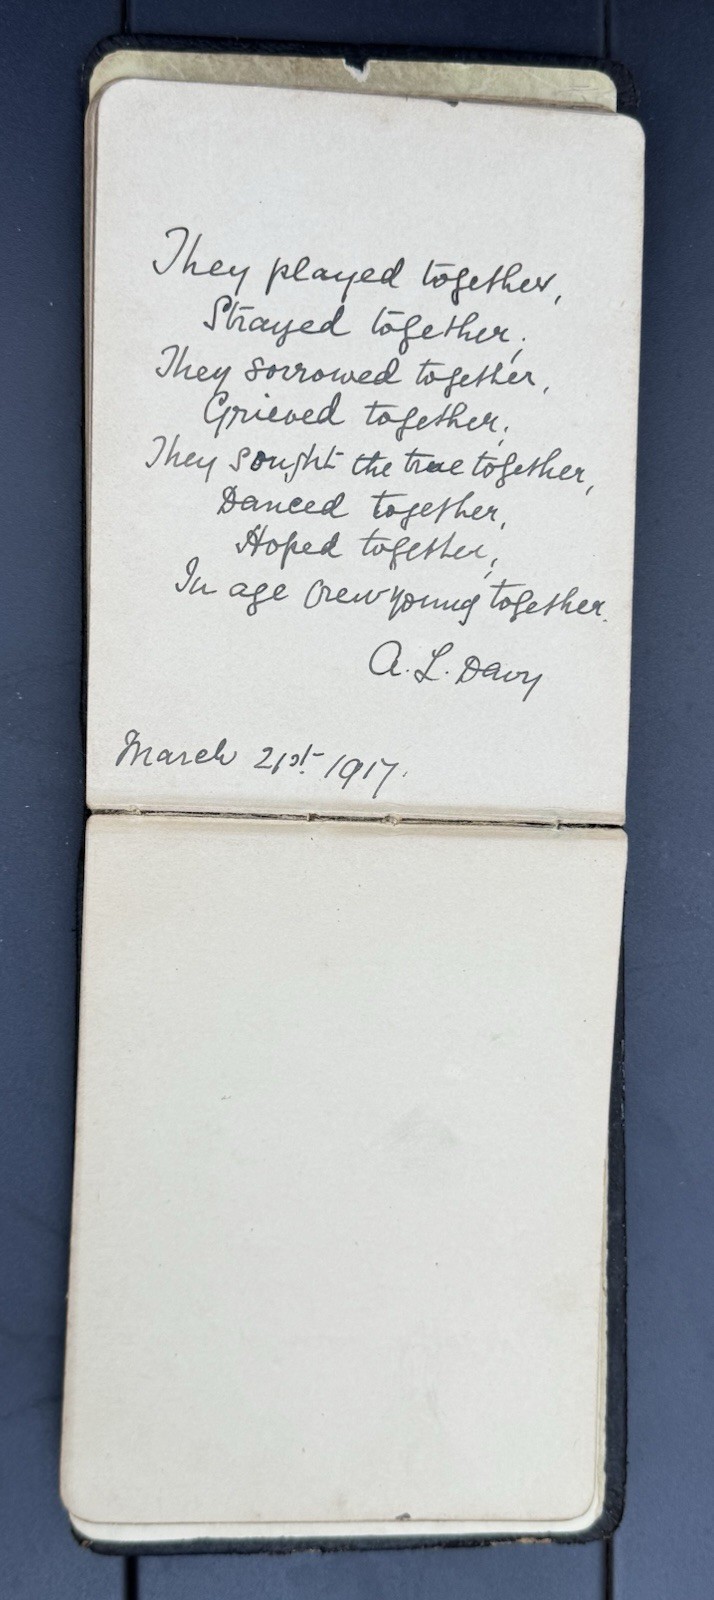 They played together,
Strayed together;
They sorrowed together,
Grieved together;
They sought the true together,
Danced together,
Hoped together;
In age grew young together.
A. L. Davy
March 21st 1917.